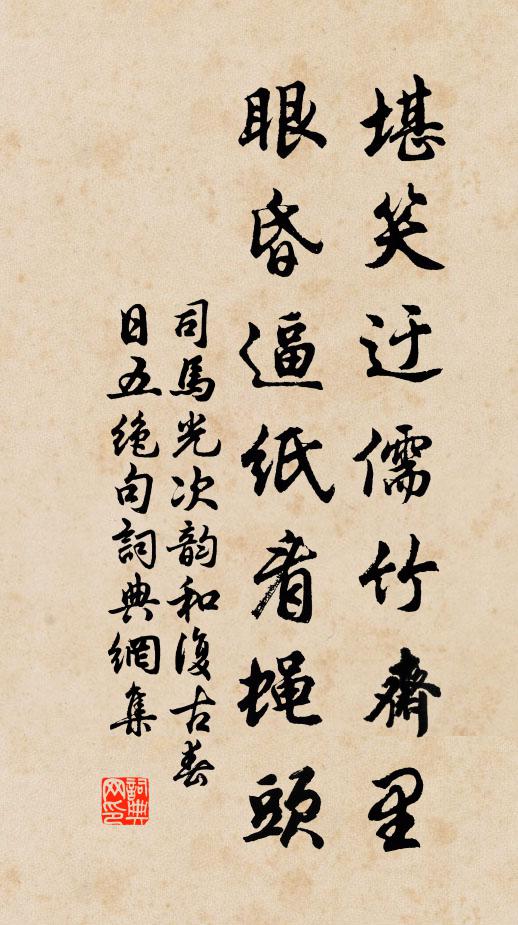 堪笑迂儒竹齋里
眼昏逼紙看蝇頭
司馬光次韵和復古春
日五絶句詞典網集
詞典
网印